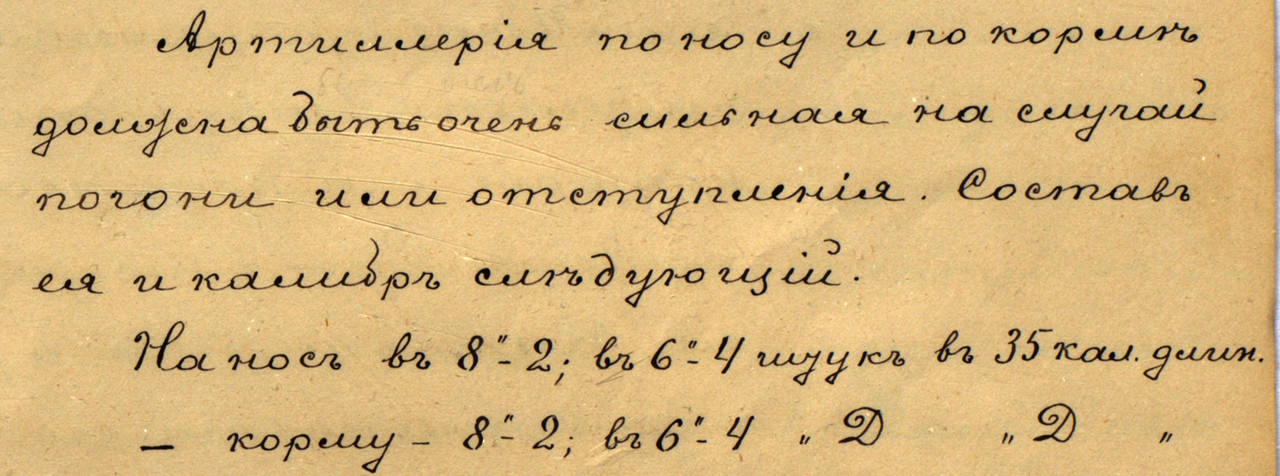 Артиллерія по носу и по кормѣ
должна быть очень сильная на случай
погони или отступленія. Составъ
ея и калибръ слѣдующій.
На носъ въ 8"- 2; въ 6"- 4 штукъ въ 35 кал. длин.
— корму – 8"- 2; въ 6"- 4 „ D „ D „